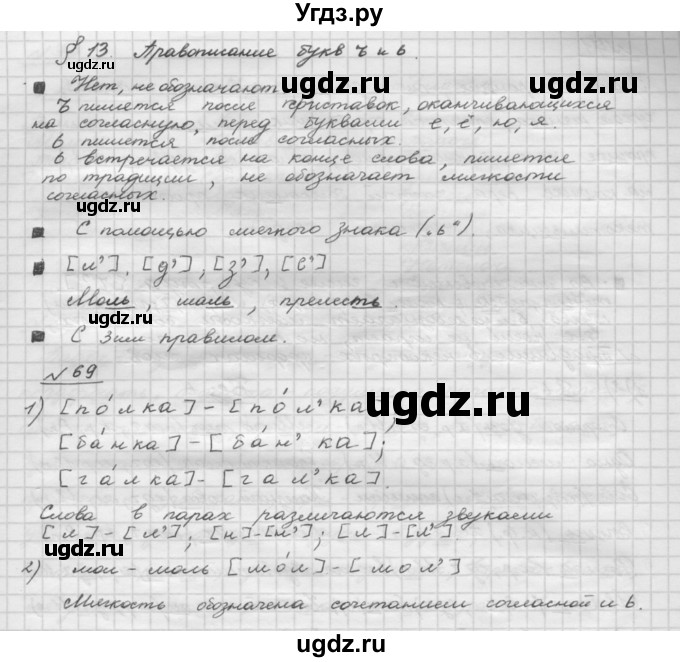 Угдз.ру
§ 13. Правописание букв ъ и ь.
Нет, не обозначают
Ъ пишется после приставок, оканчивающихся
на согласную, перед буквами е, ё, ю, я.
ь пишется после согласных.
ь встречается на конце слова, пишется
по традиции, не обозначает мягкости
согласных.
С помощью мягкого знака („ь“).
[л’], [д’], [з’], [с’]
Моль, шаль, прелесть.
С 3им правилом.
№ 69
1) [по́лка] – [по́л’ка]
[ба́нка] – [ба́н’ка];
[га́лка] – [гал’ка].
Слова в парах различаются звуками
[л]-[л’]; [н]-[н’]; [л]-[л’]
2) мол – моль [мо́л] – [мол’]
Мягкость обозначена сочетанием согласной и ь.
ugdz.ru
ugdz.ru
ugdz.ru
ugdz.ru
ugdz.ru
ugdz.ru
ugdz.ru
ugdz.ru
ugdz.ru
ugdz.ru